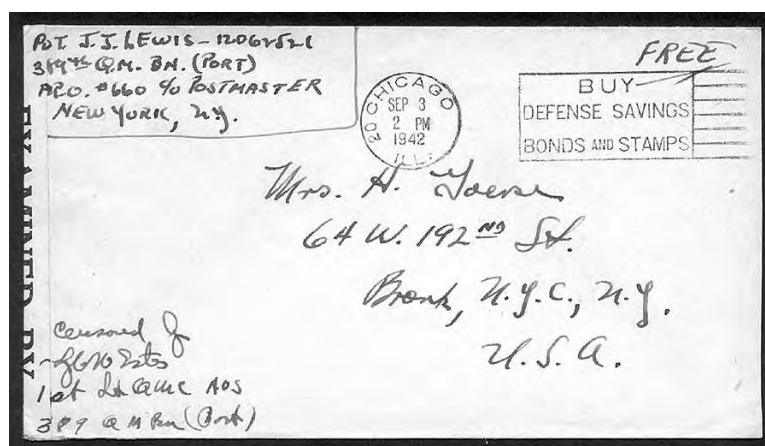 PVT J.J. LEWIS - 12062521
389th Q.M. BN. (PORT)
A.P.O. #660 c/o POSTMASTER
NEW YORK, N.Y.
FREE
CHICAGO
SEP 3
2 PM
1942
ILL.
20
BUY
DEFENSE SAVINGS
BONDS AND STAMPS
Mrs. H.
64 W. 192ND St.
Bronx, N.Y.C., N.Y.
U.S.A.
EXAMINED BY
Censored by
1st Lt QMC AUS
389 Q M Bn (Port)